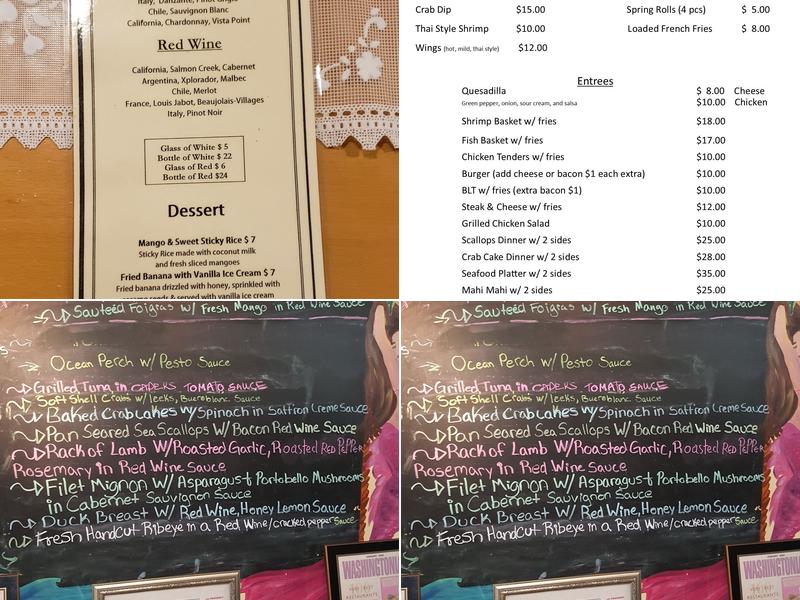 Italy, Danzante, Pinot Grigio
Chile, Sauvignon Blanc
California, Chardonnay, Vista Point
Red Wine
California, Salmon Creek, Cabernet
Argentina, Xplorador, Malbec
Chile, Merlot
France, Louis Jabot, Beaujolais-Villages
Italy, Pinot Noir
Glass of White $ 5
Bottle of White $ 22
Glass of Red $ 6
Bottle of Red $24
Dessert
Mango & Sweet Sticky Rice $ 7
Sticky Rice made with coconut milk
and fresh sliced mangoes
Fried Banana with Vanilla Ice Cream $ 7
Fried banana drizzled with honey, sprinkled with
sesame seeds & served with vanilla ice cream
Crab Dip $15.00 Spring Rolls (4 pcs) $ 5.00
Thai Style Shrimp $10.00 Loaded French Fries $ 8.00
Wings (hot, mild, thai style) $12.00
Entrees
Quesadilla $ 8.00 Cheese
Green pepper, onion, sour cream, and salsa $10.00 Chicken
Shrimp Basket w/ fries $18.00
Fish Basket w/ fries $17.00
Chicken Tenders w/ fries $10.00
Burger (add cheese or bacon $1 each extra) $10.00
BLT w/ fries (extra bacon $1) $10.00
Steak & Cheese w/ fries $12.00
Grilled Chicken Salad $10.00
Scallops Dinner w/ 2 sides $25.00
Crab Cake Dinner w/ 2 sides $28.00
Seafood Platter w/ 2 sides $35.00
Mahi Mahi w/ 2 sides $25.00
Sauteed Foigras w/ Fresh Mango in Red Wine Sauce
Ocean Perch w/ Pesto Sauce
Grilled Tuna in CAPERS TOMATO SAUCE
Soft Shell Crabs w/ leeks, Buerblanc Sauce
Baked Crabcakes w/ Spinach in Saffron Creme Sauce
Pan Seared Sea Scallops W/ Bacon Red Wine Sauce
Rack of Lamb W/Roasted Garlic, Roasted Red Pepper
Rosemary in Red Wine Sauce
Filet Mignon W/ Asparagus + Portobello Mushrooms
in Cabernet Sauvignon Sauce
Duck Breast w/ Red Wine, Honey Lemon Sauce
Fresh Handcut Ribeye in a Red Wine/cracked pepper Sauce
WASHINGTONIAN
Sauteed Foigras w/ Fresh Mango in Red Wine Sauce
Ocean Perch w/ Pesto Sauce
Grilled Tuna in CAPERS TOMATO SAUCE
Soft Shell Crabs w/ leeks, Buerblanc Sauce
Baked Crabcakes w/ Spinach in Saffron Creme Sauce
Pan Seared Sea Scallops W/ Bacon Red Wine Sauce
Rack of Lamb W/Roasted Garlic, Roasted Red Pepper
Rosemary in Red Wine Sauce
Filet Mignon W/ Asparagus + Portobello Mushrooms
in Cabernet Sauvignon Sauce
Duck Breast w/ Red Wine, Honey Lemon Sauce
Fresh Handcut Ribeye in a Red Wine/cracked pepper Sauce
WASHINGTONIAN